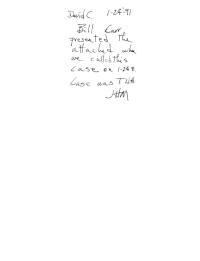 David C. 1-24-91
Bill Karr
presented the
attached when
we called this
case on 1-24-91.
Case was TWA
JHM